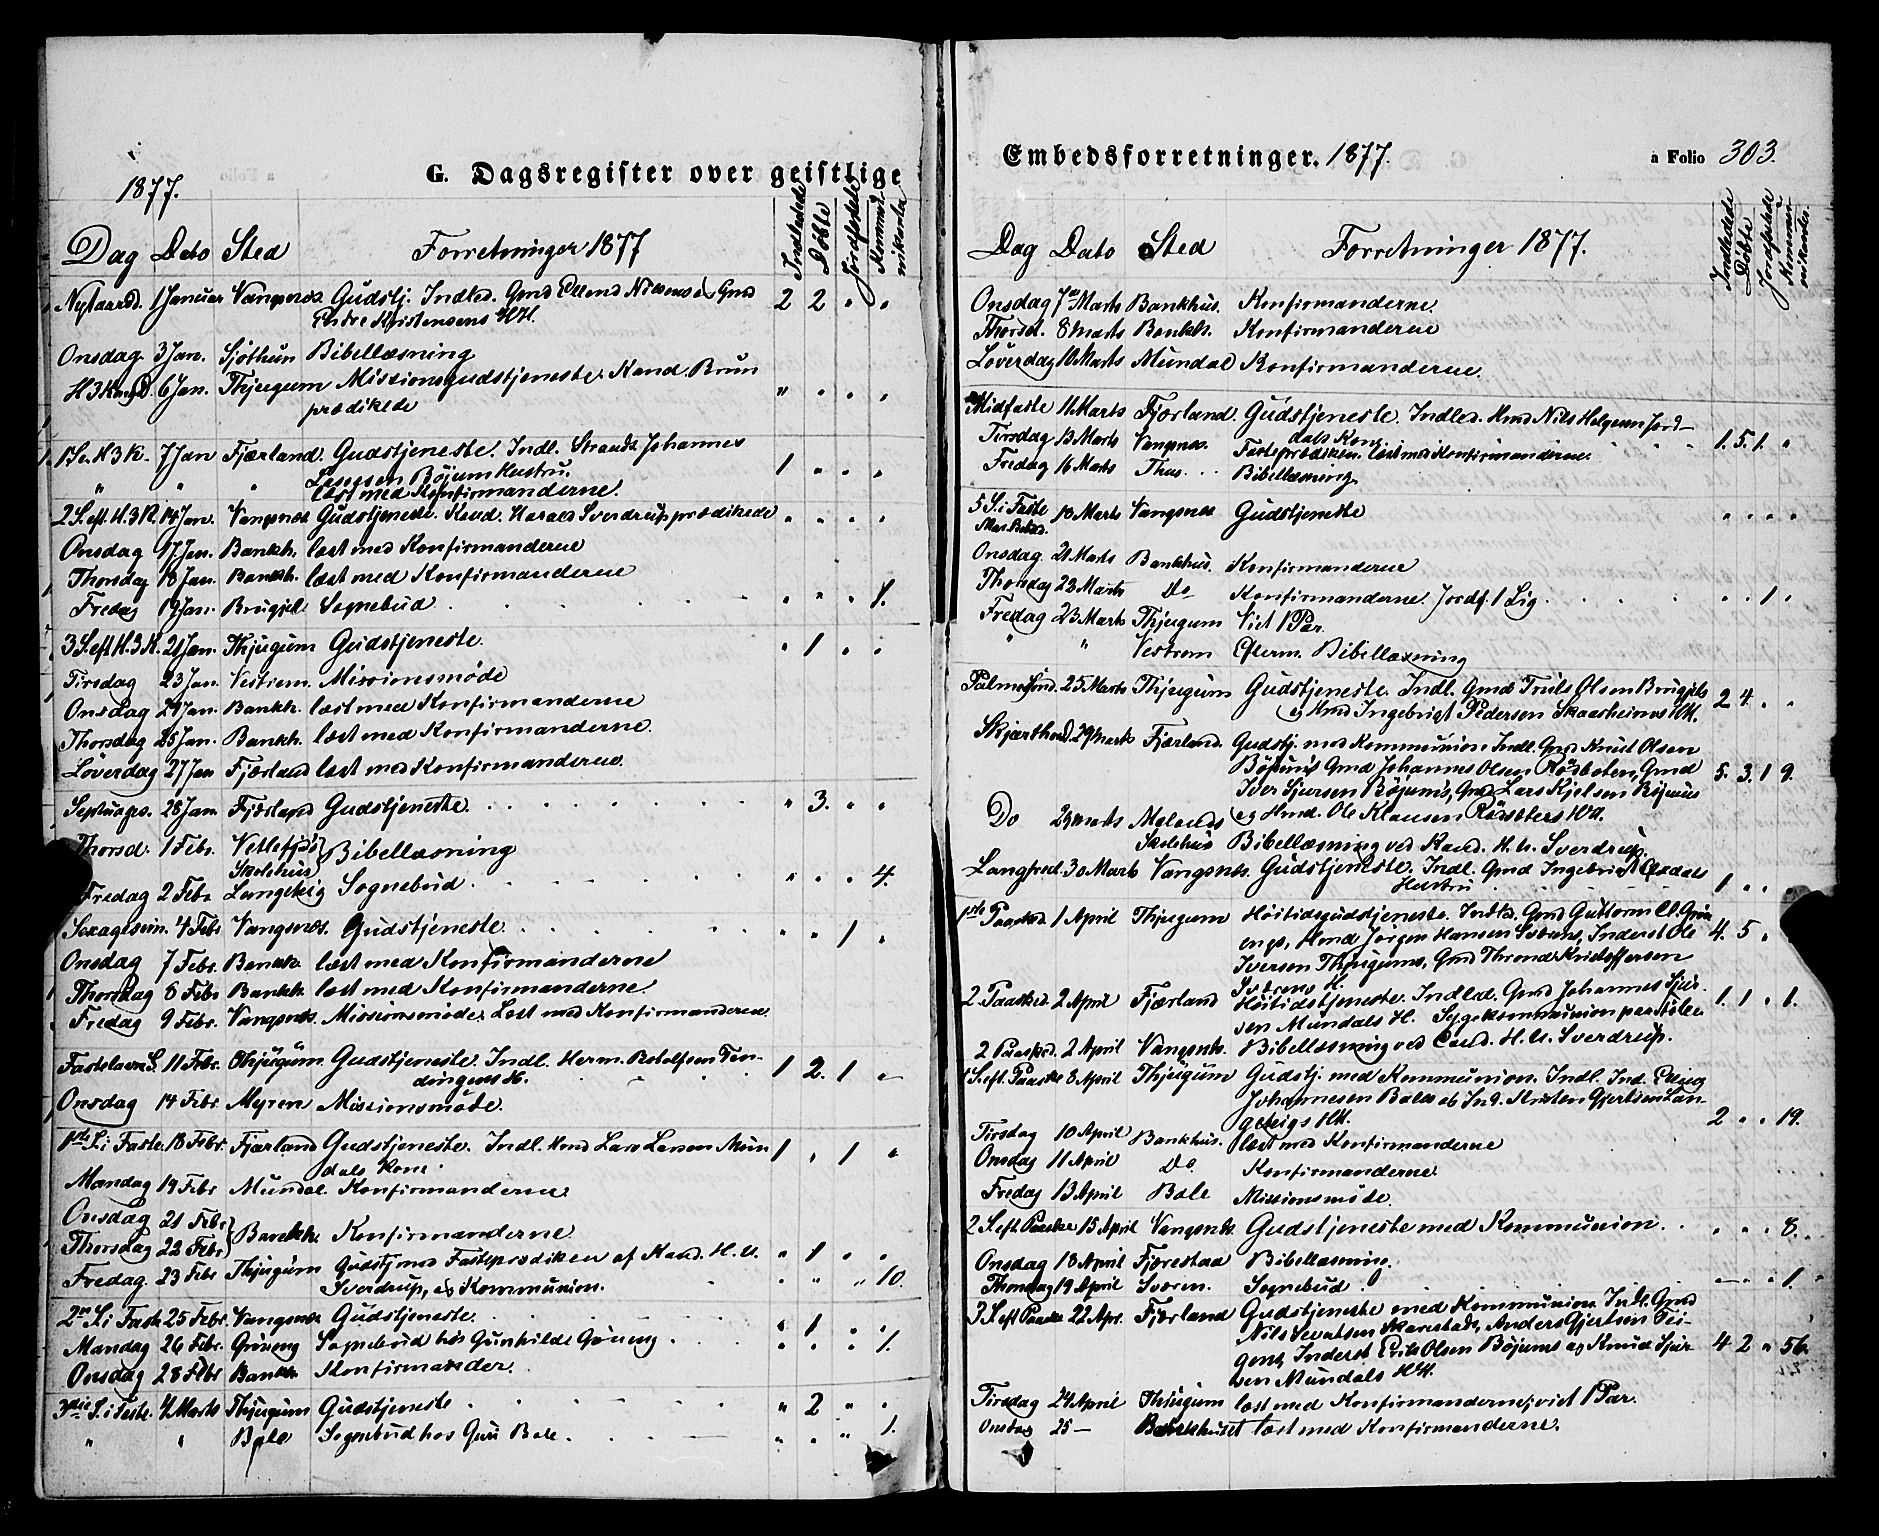 1877.
G. Dagsregister over geistlige
Dag Dato Sted Forretninger 1877 Indledede Døbte Jordfæstede Kommunikanter
Nytaarsd. 1 Januar Vangsnæs Gudstj. Indled. Gmd Erlend Nilsens & Gmd 2 2 " "
Endre Kristensens HH.
Onsdag 3 Jan. Sjøthun Bibellæsning
H 3 Kong. D. 6 Jan. Thjugum Missionsgudstjeneste. Kand. Brun " " " "
prædikede
1 S. e. H 3 K. 7 Jan Fjærland. Gudstjeneste. Indl. Strands. Johannes
Lassesen Bøjum Hustru. 1 " " "
" " " læst med Konfirmanderne.
2 S. eft. H. 3 K. 14 Jan. Vangsnæs Gudstjeneste. Kand. Harald Sverdrup prædikede " " " "
Onsdag 17 Jan. Bankh. læst med Konfirmanderne
Thorsdag 18 Jan. Bankh. læst med Konfirmanderne
Fredag 19 Jan. Brugjel. Sognebud " " " 1.
3 S. eft H. 3 K. 21 Jan. Thjugum Gudstjeneste. " 1 " "
Tirsdag 23 Jan. Vestrem. Missionsmøde
Onsdag 24 Jan. Bankh. læst med Konfirmanderne
Thorsdag 25 Jan. Bankh. læst med Konfirmanderne.
Løverdag 27 Jan Fjærland læst med Konfirmanderne.
Septuages. 28 Jan. Fjærland Gudstjeneste. " 3. " "
Thorsd. 1 Febr. Vetlefjds Bibellæsning
Skolehus
Fredag 2 Febr Langeteig Sognebud. " " " 4.
Sexagesim. 4 Febr Vangsnæs. Gudstjeneste. " " 1 "
Onsdag 7 Febr. Bankh. læst med Konfirmanderne
Thorsdag 8 Febr Bankh. læst med Konfirmanderne.
Fredag 9 Febr. Vangsnæs. Missionsmøde. Læst med Konfirmanderne.
Fastelavns S. 11 Febr. Thjugum Gudstjeneste. Indl. Herm. Rotolfsen Fen- 1 2. 1 "
dingens H.
Onsdag 14 Febr. Myren Missionsmøde.
1ste S. i Faste. 18 Febr. Fjærland Gudstjeneste. Indl. Hmd Lars Larsen Mun 1 " 1 "
dals Kone
Mandag 19 Febr Mundal. Konfirmanderne.
Onsdag 21 Febr
Thorsdag 22 Febr Bankh. Konfirmanderne
Fredag. 23 Febr Thjugum Gudstj. med Fasteprædiken af Kand. H. U. " 1 " "
Sverdrup, og Kommunion. " " " 10.
2n S. i Fast 25 Febr. Vangsnæs Gudstjeneste. " 1 " "
Mandag 26 Febr. Grøneng Sognebud hos Gunhilde Grøneng. " " " 1.
Onsdag 28 Febr Bankh. Konfirmander.
3die S. i Faste. 4 Marts Thjugum Gudstjeneste " 2 " "
" " Bale Sognebud hos Guri Bale. " " " 1.
Embedsforretninger. 1877.
a Folio 303.
Dag Dato Sted Forretninger 1877. Indledede Døbte Jordfæstede Kommunikanter.
Onsdag 7de Marts Bankhus. Konfirmanderne.
Thorsd. 8 Marts Bankh. Konfirmanderne
Løverdag 10 Marts Mundal Konfirmanderne.
Midfaste 11 Marts Fjærland. Gudstjeneste. Indled. Hmd Nils Helgesen Jord-
dals Kone 1. 5. 1. "
Tirsdag 13 Marts Vangsnæs. Fasteprædiken. læst med Konfirmanderne.
Fredag 16 Marts Thue. Bibellæsning
5 S. i Faste 18 Marts Vangsnæs Gudstjeneste " " " "
Mar. Bebud.
Onsdag 21 Marts Bankhus. Konfirmanderne
Thorsdag 22 Marts Do Konfirmanderne. Jordf. 1 Lig. " " 1 "
Fredag 23 Marts Thjugum Viet 1 Par.
" " Vestrem Efterm. Bibellæsning
Palmesønd. 25 Marts Thjugum Gudstjeneste. Indl. Gmd Truls Olsen Brugjels 2 4 " "
og Hmd Ingebrigt Pedersen Skaasheims HH.
Skjærthorsd. 29 Marts Fjærland. Gudstj. med Kommunion Indl. Gmd Knut Olsen
Bøjums Gmd Johannes Olsen Rødseter, Gmd 5. 3. 1 9.
Iver Sjursen Bøjums, Gmd Lars Kjelsen Bøjums
og Hmd. Ole Klausen Rødseters HH.
Do 29 Marts Melands
Skolehus Bibellæsning ved Kand. H. U. Sverdrup.
Langfred. 30 Marts Vangsnæs. Gudstjeneste. Indl. Gmd Ingebrigt
Hustru 1 " "
1ste Paasked. 1 April Thjugum Høitidsgudstjeneste. Indled. Gmd Guttorm Ol. Grøn
engs, Hmd Jørgen Hansen, Inderst Ole 4. 5 "
Iversen Thjugums, Gmd Thrond Kristoffersen
H.
2 Paasked. 2 April Fjærland Høitidstjeneste. Indled. Gmd Johannes Sjur- 1. 1 " 1.
sen Mundals H. Sygekommunion
2 Paasked. 2 April Vangsnæs. Bibellæsning ved Cand. H. U. Sverdrup.
1 S. eft. Paaske 8 April Thjugum Gudstj. med Kommunion. Indl. Ind. Elling
Johannesen Bales og Ind. Kristen Gjertsen Lan-
geteigs HH. 2 " " 19.
Tirsdag 10 April Bankhus. læst med Konfirmanderne
Onsdag 11 April Do Konfirmanderne.
Fredag 13 April Bale Missionsmøde.
2 S. eft. Paaske 15 April Vangsnæs. Gudstjeneste med Kommunion. " " " 8.
Onsdag 18 April Fjærestad Bibellæsning.
Thorsdag 19 April Sværen. Sognebud " " 1
3 S. eft Paaske 22 Apr. Fjærland Gudstjeneste med Kommunion. Indl. Gmd
Nils Sevatsen Skarestads, Anders Gjertsen Tei-
gens, Inderst Erik Olsen Bøjums og Knud Sjur- 4 2 " 56.
sen Mundals HH.
Tirsdag 24 April Thjugum læst med Konfirmanderne, viet 1 Par.
Onsdag 25 — Bankhuset læst med Konfirmanderne.